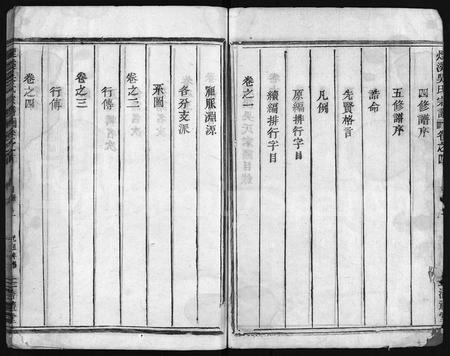 四修譜序
五修譜序
誥命
先賢格言
凡例
原編排行字目
續編排行字目
卷之一
寵賑淵源
各分支派
系圖
卷之二
行傳
卷之三
行傳
卷之四